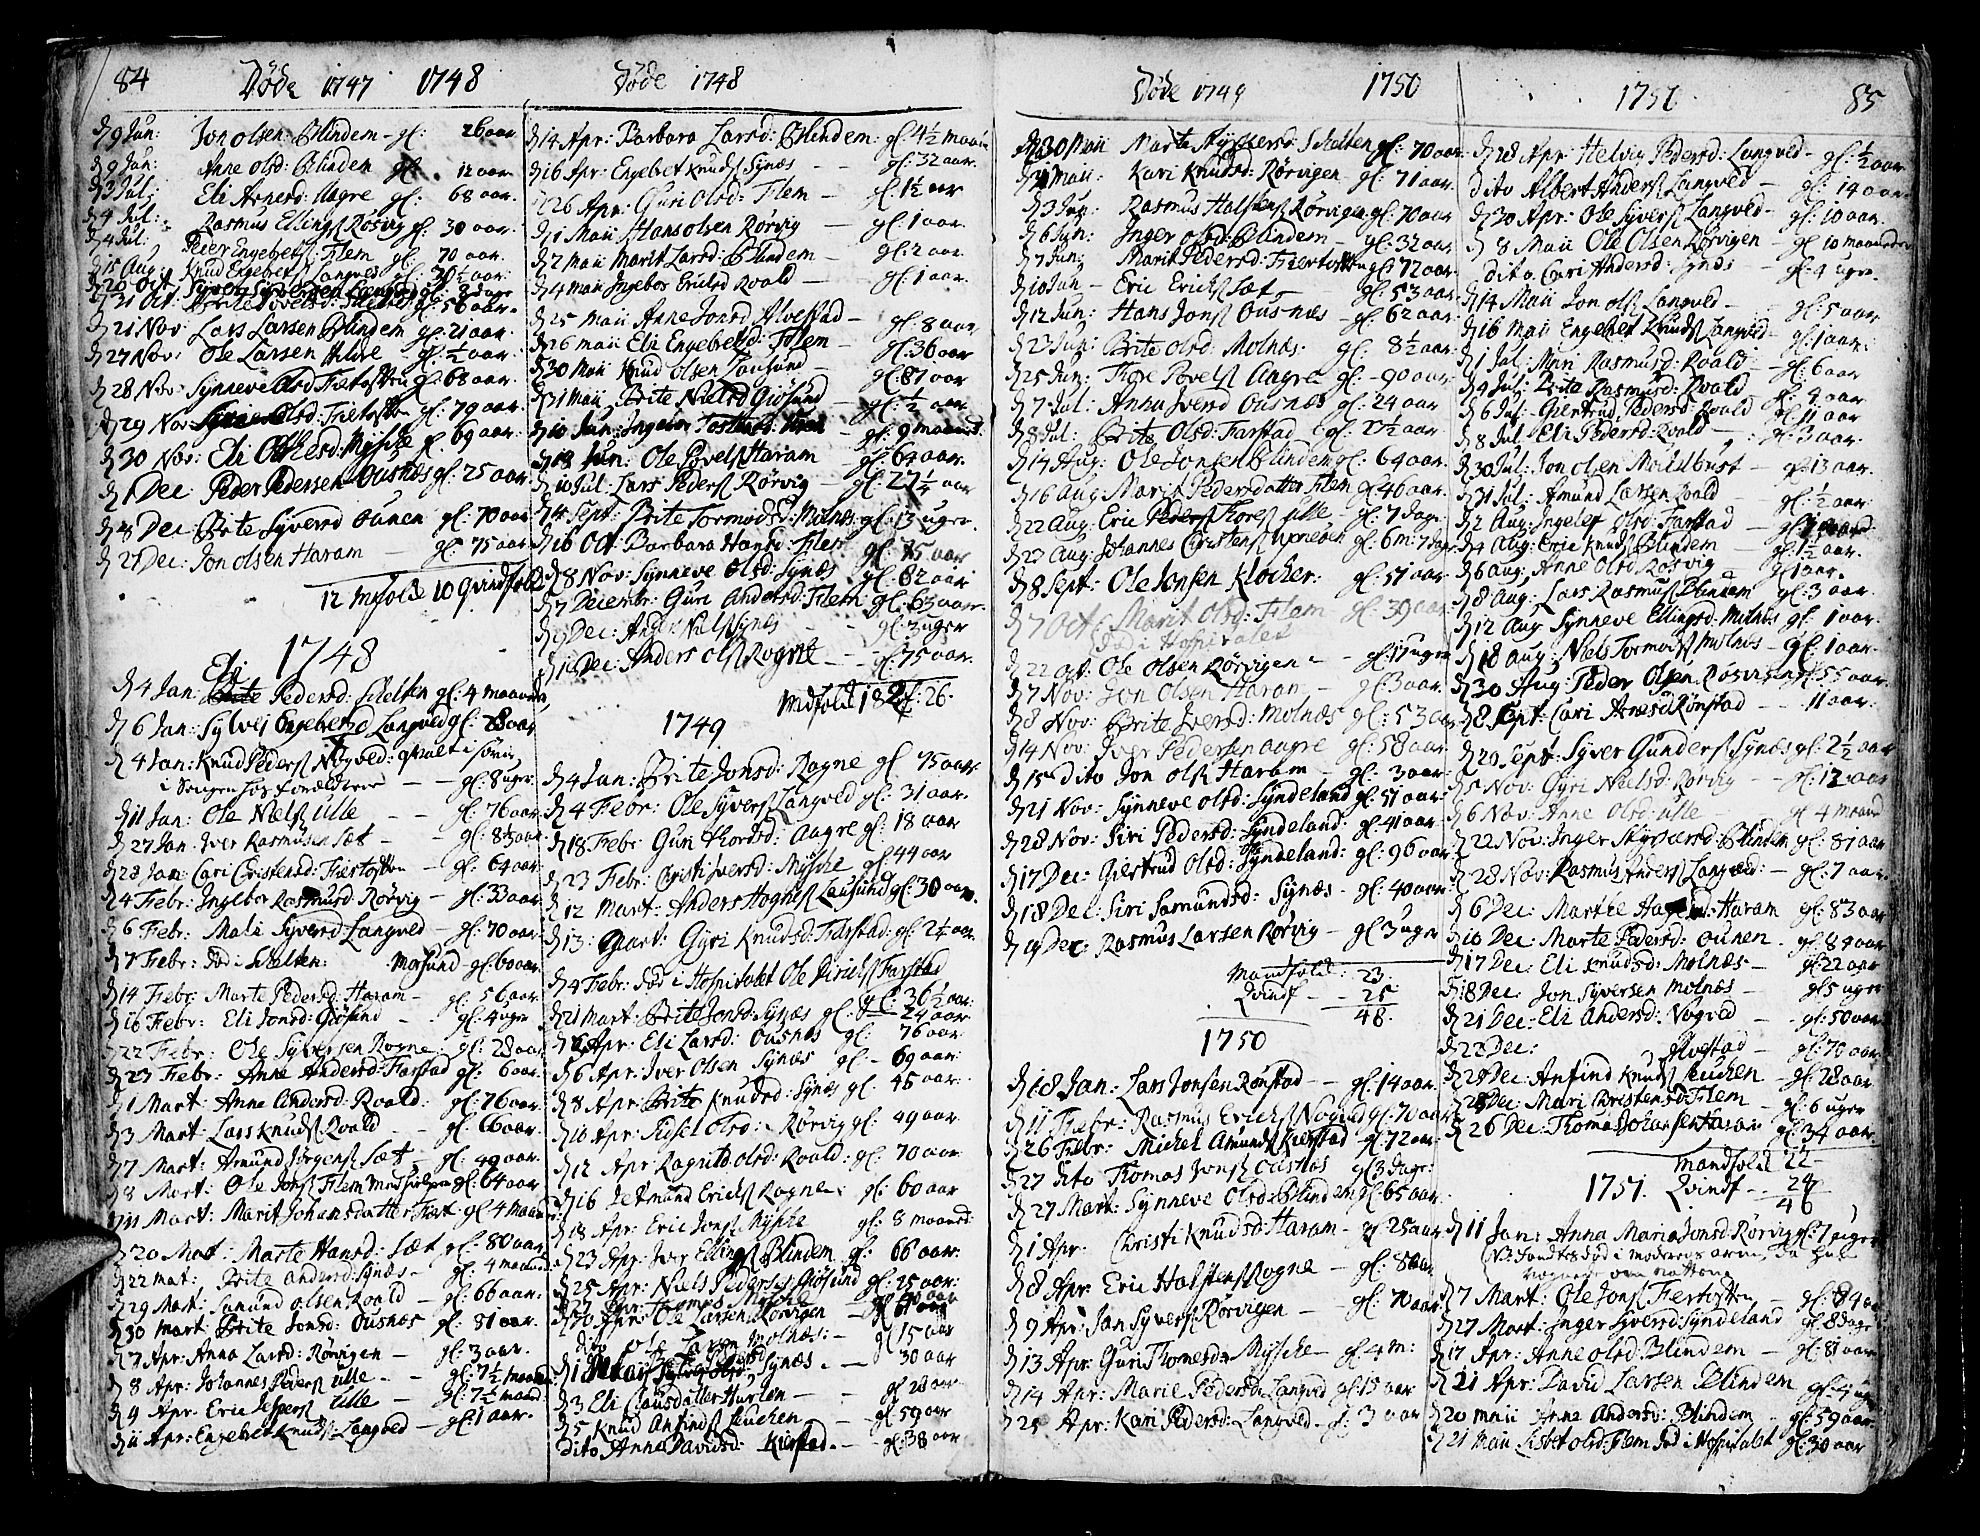 84 Døde 1747 1748
d 9 Jun: Jon Olsen Blindem gl: 26 aar
d 9 Jun: Anne Olsd: Blindem gl: 12 aar
d 3 Jul: Eli Arnesd: Aagre gl: 68 aar.
d 4 Jul: Rasmus Ellings Røsvig gl: 30 aar.
d 4 Jul: Peder Engebets: Flem gl: 70 aar.
d 15 Aug: Knud Engebets Langves gl:
d 31 Oct: gl: 56 aar.
d 21 Nov: Lars Larsen Blindem gl: 21 aar.
d 27 Nov: Ole Larsen gl: ½ aar.
d 28 Nov: Synneve Olsd: gl: 68 aar.
d 29 Nov Olsd: gl: 79 aar.
d 30 Nov: Eli gl: 69 aar.
d 1 Dec: Peder Pedersen Ousnæs gl: 25 aar
d 8 Dec: Brite Syversd Ounen gl: 70 aar
d 27 Dec: Jon Olsen Haram — gl: 75 aar
12 Mfold 10 Qvindfold
1748
d 4 Jan: Eli Pedersd: Schelten gl: 4 maaneder
d 6 Jan: Sylvei Engebetsd Langved gl: 28 aar
d 4 Jan: Knud Peders Nogved: qvalt i søvne
i Sengen hos foreldrene — gl: 8 uger
d 11 Jan: Ole Niels Ulle — gl: 76 aar
d 27 Jan: Iver Rasmusen Sæt — gl: 83 aar
d 28 Jan: Cari Cristensd: — gl: 64 aar.
d 4 Febr: Ingebor Rasmusd Rørvig — gl: 33 aar.
d 6 Febr: Mali Syversd Langved — gl: 70 aar.
d 7 Febr: Død i Schelten: — gl: 60 aar.
d 14 Febr: Marte Pedersd: Haram — gl: 56 aar.
d 16 Febr: Eli Jonsd: Giøsund — gl: 4 uger
d 22 Febr: Ole Sylvesen Rogne: gl: 28 aar
d 23 Febr: Anne Andersd: Farstad gl: 6 aar.
d 1 Mart: Anne Andersd: Roald: gl: 76 aar
d 3 Mart: Lars Knuds Roald — gl: 66 aar.
d 7 Mart: Amund Jørgens Sæt — gl: 49 aar.
d 8 Mart: Ole Jons Flem gl: 64 aar
d 11 Mart: Marit Johansdatter gl: 4 maan
d 20 Mart: Marte Hansd: Sæt gl: 80 aar
d 22 mart: Brite Andersd: Synæs — gl: 4 maand
d 29 Mart: Samund Olsen Roald — gl: 66 aar.
d 30 mart Brite Jonsd: Ousnæs gl: 81 aar.
d 7 Apr: Anna Larsd: Rørvigen — gl: 3 aar.
d 8 Apr: Johannes Peders Ulle — gl: 7½ maand
d 9 Apr: Eric Ulle — gl: 7½ maand
d 11 Apr: Engebet Knuds Langved — gl: 1 aar.
Døde 1748
d 14 Apr: Barbara Larsd: Blindem: gl: 4½ maan
d 16 Apr: Engebet Knuds Synæs — gl: 32 aar.
d 26 Apr: Guri Olsd: Flem — gl: 1½ aar
d 1 Maii Hans Olsen Rørvig — gl: 1 aar.
d 2 Maii Marit Larsd: Blindem — gl: 2 aar.
d 4 Maii Ingebor Ericksd Roald — gl: 1 aar.
d 25 Maii Anne Jonsd Alvestad — gl: 8 aar
d 26 maii Eli Engebetsd: Flem — gl: 36 aar
d 30 Maii Knud Olsen Lausund — gl: 87 aar
d 31 Maii Brite Nielsd Giøsund — gl: ½ aar
d 10 Jun: Ingebor — gl: 9 maand:
d 18 Jun: Ole Povels Haram — gl: 64 aar.
d 10 Jul: Lars Peders Rørvig — gl: 27¼ aar
d 4 Sept: Brite Tormodsd: Molnæs gl: 13 uger.
d 16 Oct: Barbara Hansd: Flem gl: 75 aar
d 8 Nov: Synneve Olsd: Synæs gl: 82 aar
d 7 Decemb: Guri Andersd: Flem gl: 63 aar.
d 9 Dec: Niels Synæs — gl: 3 uger
d 16 Dec: Anders Ols Rogne — gl: 75 aar.
Mfold 18 26.
1749
d 4 Jan: Brite Jonsd: Rogne gl 75 aar
d 4 Febr: Ole Syvers Langved gl: 31 aar.
d 18 Febr: Guri Thordsd: Aagre gl: 18 aar
d 23 Febr: Cristi Iversd: Myssche gl: 44 aar
d 12 Mart: Anders Hognes Lausund gl: 30 aar.
d 13: Mart: Gyri Knudsd: Farstad: gl: 2½ aar
d 4 Febr: død i Hospitalet Ole Dirichs Farstad
gl: 36½ aar:
d 21 Mart: Brite Jonsd: Synæs gl: 24 aar
Apr: Eli Larsd: Ousnæs gl: 76 aar:
d 6 Apr: Iver Olsen Synæs gl: — 69 aar:
d 8 Apr Brite Knudsd: Synæs gl: 45 aar:
d 10 Apr: Sidsel Olsd: Rørvig gl: 49 aar.
d 12 Apr Ragnild Olsd: Roald: gl: 70 aar.
d 16 Ericks Rogne: gl: 60 aar
d 18 Apr: Eric Jons Myssche gl: 8 maand:
d 23 Apr: Iver Ellings Blindem gl: 66 aar:
d 25 Apr: Niels Pedersen Giøsund gl: 25 aar:
d 27 Apr: Thomas Myssche
d 30 Apr: Ole Larsen Rørvigen
dito Ole Larsen Molnæs: — gl 15 aar
d 1 Maii Synæs. — 30 aar
d 3 Eli Clausdatter Hurlen — gl 20 aar
d 5 Knud Anfinds Leuchen — gl: 59 aar
dito Anna Davidsd: Kierstad. — gl: 38 aar
Døde 1749 1750
d 30 Maii Marte Schelten gl: 70 aar
d Maii: Kari Knudsd: Rørvigen — gl: 71 aar.
d 3 Jun: Rasmus Halsteens Rørvigen gl: 70 aar
d 6 Jun: Inger Olsd: Blindem — gl: 32 aar
d 7 Jun: Marit Pedersd: gl: 72 aar.
d 10 Jun — Eric Ericks Sæt — gl: 53 aar
d 12 Jun: Hans Jons Ousnæs — gl: 62 aar:
d 23 Jun: Brite Olsd: Molnæs. gl: 8½ aar:
d 25 Jun: Thore Povels Aagre gl: — 90 aar:
d 7 Jul: Anna Iversd Ousnæs gl: 24 aar
d 8 Jul: Brite Olsd: Farstad gl: 2½ aar.
d 14 Aug: Ole Jonsen Blindem gl: 64 aar.
d 16 Aug Marit Pedersdatter Flem gl: 46 aar.
d 22 Aug: Eric Thores Ulle — gl: 7 dage
d 23 Aug: Johannes Cristens gl: 6 m: 7 dage
d 8 Sept: Ole Jonsen Klocher: gl: 51 aar
d 7 Oct: Marit Olsd: Flem gl: 39 aar
Død i Hospitalet
d 22 Oct: Ole Olsen Rørvigen — gl: 17 uger
d 7 Nov: Jon Olsen Haram — gl: 3 aar.
d 8 Nov: Brite Iversd: Molnæs gl: 53 aar
d 14 Nov: Iver Pedersen Aagre gl: 58 aar.
d 15 dito Jon Ols Haram — gl: 3 aar:
d 21 Nov: Synneve Olsd: Syndeland gl: 51 aar:
d 28 Nov: Siri Pedersd: Syndeland: gl: 41 aar
d 17 Dec: Giertrud Olsd: Syndeland: gl: 96 aar
d 18 Dec: Siri Samundsd: Synæs — gl: 40 aar
d 19 Dec: Rasmus Larsen Rørvig — gl 3 uger
Mandfold: 23.
Qvindf — 25
48.
1750
d 18 Jan: Lars Jonsen Rønstad — gl: 14 aar.
d 11 Febr: Rasmus Ericks Nogved gl: 70 aar
d 26 Febr: Michel Amunds Kierstad gl: 72 aar:
d 27 dito Thomas Jons Ousnæs gl: 3 dage:
d 27 Mart: Synneve Olsd: Blindem gl: 65 aar.
d 1 Apr: Christi Knudsd: Haram — gl: 25 aar
d 8 Apr: Eric Halsteens Rogne — gl: 80 aar
d 9 Apr: Jan Syvers Rørvigen — gl: 70 aar
d 13 Apr: Guri Thomesd: Myssche — gl 4 m:
d 14 Apr: Marie Pedersd: Langved gl: 15 aar
d 24 Apr: Kari Pedersd: Langved — gl: 3 aar
1751 85
d 28 Apr: Helvig Pedersd: Langved — gl: ½ aar
Dito Albert Anders Langved — gl: 14 aar
d 30 Apr: Ole Syvers Langved — gl: 10 aar.
d 8 Maii Ole Olsen Rørvigen — gl 10 maaneder
dito Cari Andersd: Synæs — gl: 4 uger.
d 14 Maii Jon Ols Langved — gl: 5 aar
d 16 Maii Engebet Knuds Langved — gl: 1 aar:
d 1 Jul: Mari Rasmusd: Roald: — gl: 6 aar
d 4 Jul: Brite Rasmusd: Roald gl: 4 aar
d 6 Jul: Giertrud Pedersd: Roald gl: 11 aar
d 8 Jul Eli Pedersd: Roald — gl: 3 aar.
d 30 Jul: Jon Olsen Michelbust — gl 13 aar.
d 31 Jul: Amund Larsen Roald — gl: ½ aar
d 2 Aug: Ingelef Olsd: Farstad — gl:
d 4 Aug: Eric Knuds Blindem — gl: 1½ aar.
d 6 Aug: Anne Olsd: Røsvig — gl: 1 aar.
d 8 Aug: Lars Rasmus Blindem gl: 3 aar.
d 12 Aug Synneve Ellingsd: Molnæs gl: 1 aar.
d 18 Aug: Niels Tormods Molnæs — gl: 1 aar.
d 30 Aug: Peder Olsen Røsvigen gl: 55 aar.
d 8 Sept: Cari Arnesd Rønstad — 11 aar.
d 20 Sept: Syver Gunders Synæs gl: 2½ aar
d 5 Nov: Gyri Nielsd: Rørvig — gl: 12 aar
d 6 Nov: Anne Olsd: Ulle gl 4 maand
d 22 Nov: Inger Blindem gl: 81 aar
d 28 Nov: Rasmus Anders Langved: — gl: 7 aar.
d 6 Dec: Marthe Haram gl: 83 aar
d 10 Dec: Marte Pedersd: Ounen gl: 84 aar
d 17 Dec: Eli Knudsd: Molnæs — gl: 22 aar
d 18 Dec: Jon Syversen Molnæs — gl 5 uger
d 21 Dec: Eli Andersd: Nogved — gl: 50 aar
d 22 Dec: Alvestad — gl: 70 aar
d 24 Dec: Anfind Knuds Leuchen — gl: 28 aar
d 28 Dec: Mari Christensd: Flem gl: 6 uger
d 26 Dec: Thomas Johansen Haram gl: 34 aar
Mandfold 22
1751. Qvindf — 24
46
d 11 Jan: Anna Maria Jonsd: Rørvig gl: 7 uger
(NB: fandtes død i moderens arm, da hun
vognede om Natten)
d 7 Mart: Ole Jons — gl: 84 aar
d 27 Mart: Inger Syversd: Syndeland gl: 8 dage
d 17 Apr: Anne Olsd: Blindem — gl: 81 aar
d 21 Apr: David Larsen Blindem gl: 4 uger
d 20 maii Anne Andersd: Blindem — gl: 59 aar.
d 21 Maii Lisbet Olsd: Flem død i Hospitalet gl: 30 aar